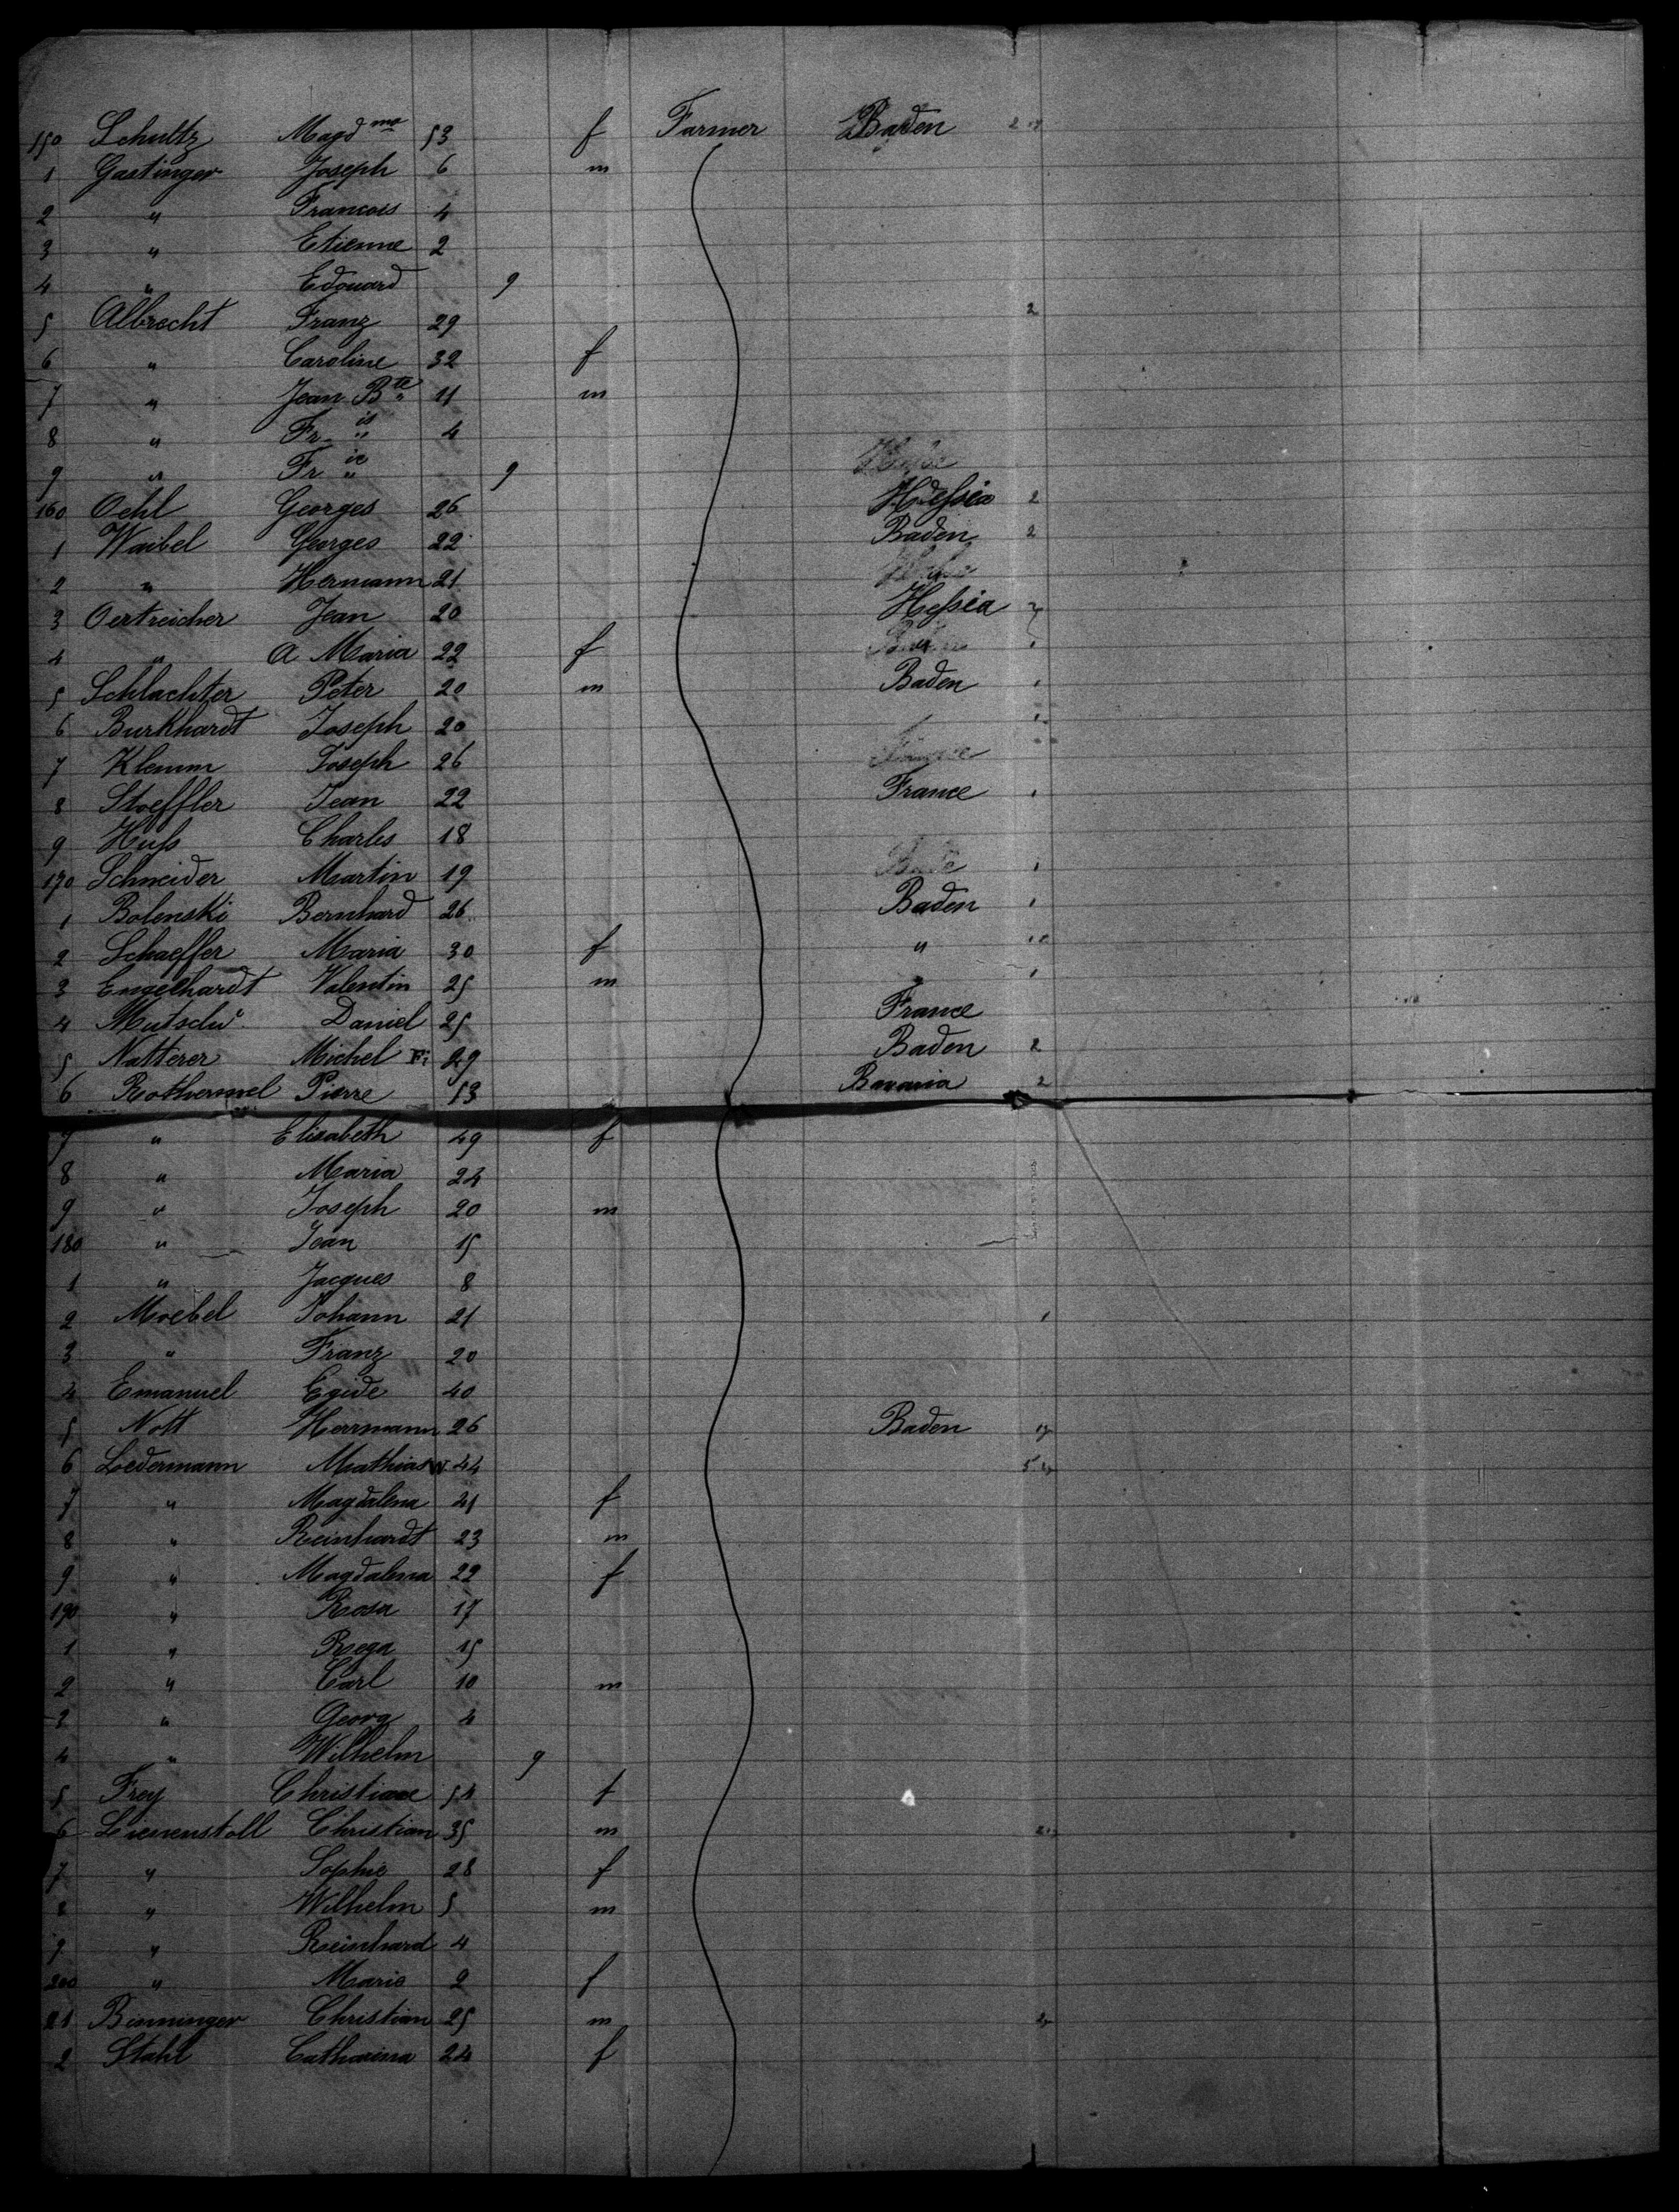 150 Schultz Magd me 53 f Farmer Baden 2
1 Gastinger Joseph 6 m
2 " Francois 4
3 " Etienne 2
4 " Edouard 9
5 Albrecht Franz 29 2
6 " Caroline 32 f
7 " Jean Bte 11 m
8 " Fr is 4
9 " Fr ie 9
160 Oehl Georges 26 Hessia 2
1 Waibel Georges 22 Baden 2
2 " Hermann 21
3 Oertreicher Jean 20 Hessia
4 " A Maria 22 f
5 Schlachter Peter 20 m Baden 1
6 Burkhardt Joseph 20 1
7 Klemm Joseph 26
8 Stoeffler Jean 22 France 1
9 Huss Charles 18
170 Schneider Martin 19 1
1 Bolenski Bernhard 26 Baden 1
2 Schaeffer Maria 30 f "
3 Engelhardt Valentin 25 m " 1
4 Mutschr Daniel 25 France
5 Natterer Michel Fi 29 Baden 2
6 Rothermel Pierre 53 Bavaria 2
7 " Elisabeth 49 f
8 " Maria 24
9 " Joseph 20 m
180 " Jean 15
1 " Jacques 8
2 Moebel Johann 21 1
3 " Franz 20
4 Emanuel Egide 40
5 Nott Herrmann 26 Baden
6 Ledermann Mathias 44
7 " Magdalena 41 f
8 " Reinhardt 23 m
9 " Magdalena 22 f
190 " Rosa 17
1 " Rega 15
2 " Carl 10 m
3 " Georg 4
4 " Wilhelm 9
5 Frey Christiane 54 f
6 Lienenstoll Christian 35 m
7 " Sophie 28 f
8 " Wilhelm 5 m
9 " Reinhard 4
200 " Marie 2 f
21 Binninger Christian 25 m
2 Stahl Catharina 24 f